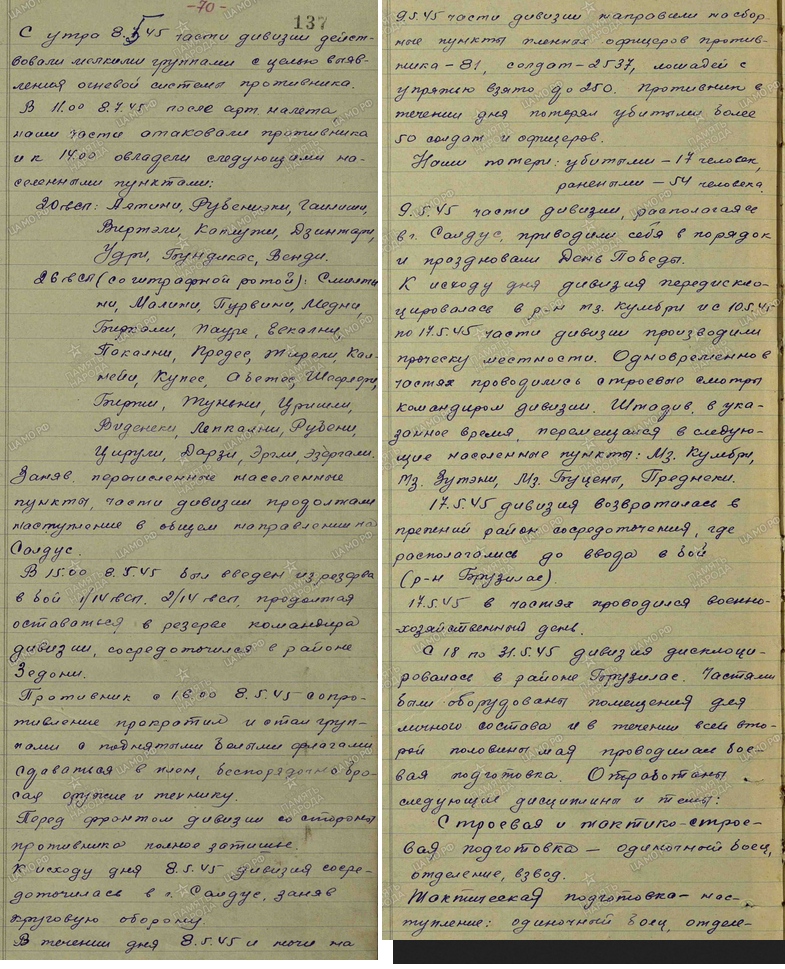 -70-
137
С утра 8.5.45 части дивизии дейст-
вовали мелкими группами с целью выяв-
ления огневой системы противника.
В 11.00 8.5.45 после арт. налета,
наши части атаковали противника
и к 14.00 овладели следующими на-
селенными пунктами:
20 гвсп: Лятини, Рубениэки, Гаишиши,
Виртэли, Каплужи, Дзинтари,
Удри, Бундикас, Венди.
26 гвсп (со штрафной ротой): Смилти
ни, Малини, Пурвини, Медни,
Биркали, Паузе, Векални,
Пакални, Предес, Жирели, Кал-
нейи, Купес, Абетес, Шефлери,
Биржи, Жуньни, Циришли,
Виденеки, Лепкални, Рубени,
Цирули, Дарзи, Эргли, Эзергали.
Заняв перечисленные населенные
пункты, части дивизии продолжали
наступление в общем направлении на
Салдус.
В 15.00 8.5.45 был введен из резерва
в бой 1/14 гвсп. 2/14 гвсп, продолжая
оставаться в резерве командира
дивизии, сосредоточился в районе
Зедони.
Противник с 16.00 8.5.45 сопро-
тивление прекратил и стал груп-
пами с поднятыми белыми флагами
сдаваться в плен, беспорядочно бро-
сая оружие и технику.
Перед фронтом дивизии со стороны
противника полное затишье.
К исходу дня 8.5.45 дивизия сосре-
доточилась в г. Салдус, заняв
круговую оборону.
В течении дня 8.5.45 и ночи на
9.5.45 части дивизии направили на сбор-
ные пункты пленных офицеров против-
ника - 81, солдат - 2537, лошадей с
упряжью взято до 250. Противник в
течении дня потерял убитыми более
50 солдат и офицеров.
Наши потери: убитыми - 17 человек,
ранеными - 54 человека.
9.5.45 части дивизии, располагаясь
в г. Салдус, приводили себя в порядок
и праздновали День Победы.
К исходу дня дивизия передисло-
цировалась в р-н мз. Кумбри и с 10.5.45
по 17.5.45 части дивизии производили
проческу местности. Одновременно в
частях проводились строевые смотры
командиром дивизии. Штадив, в ука-
занное время, перемещался в следую-
щие населенные пункты: Мз. Кумбри,
Мз. Зутэни, Мз. Буцены, Преднеки.
17.5.45 дивизия возвратилась в
прежний район сосредоточения, где
располагались до ввода в бой
(р-н Брузилас).
17.5.45 в частях проводился военно-
хозяйственный день.
С 18 по 31.5.45 дивизия дислоци-
ровалась в районе Брузилас. Частями
были оборудованы помещения для
личного состава и в течении всей вто-
рой половины мая проводилась бое-
вая подготовка. Отработаны
следующие дисциплины и темы:
Строевая и тактико-строе-
вая подготовка - одиночный боец,
отделение, взвод.
Тактическая подготовка - нас-
тупление: одиночный боец, отделе-